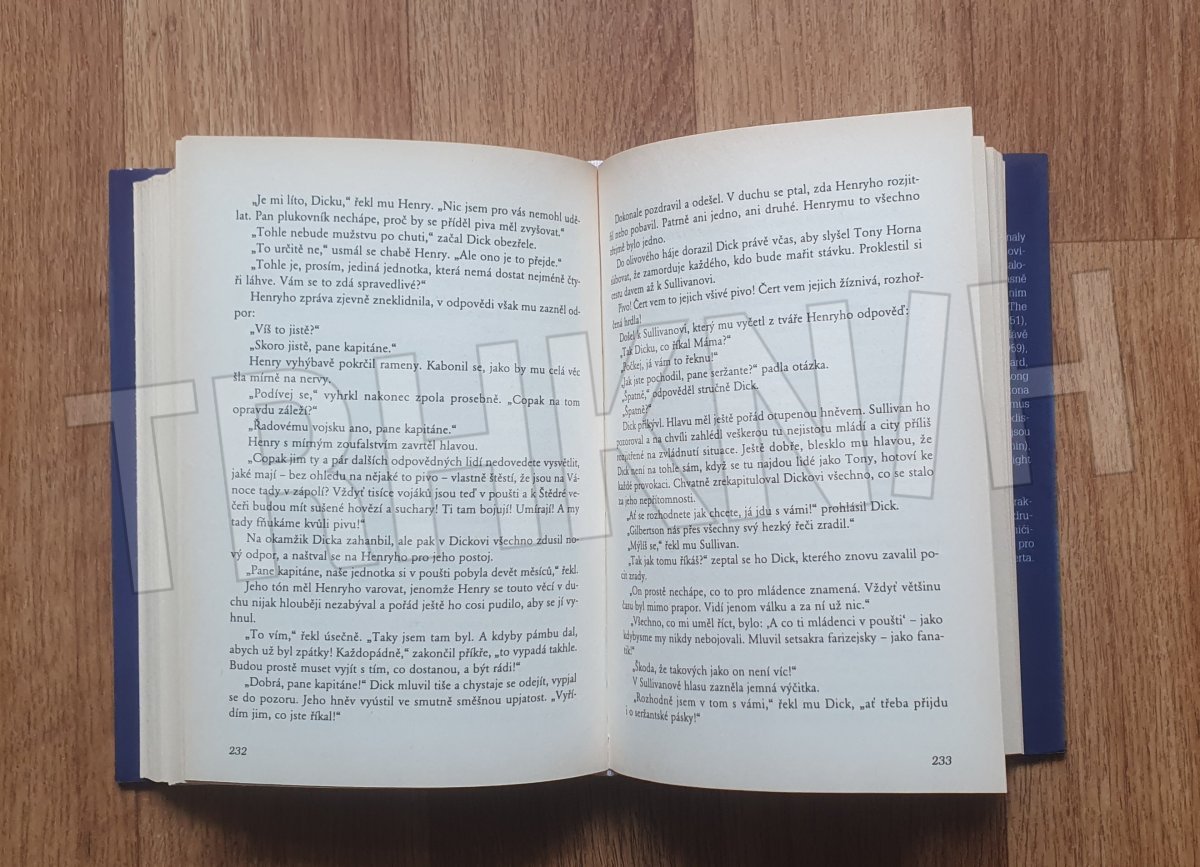 „Je mi líto, Dicku,“ řekl mu Henry. „Nic jsem pro vás nemohl udě-
lat. Pan plukovník nechápe, proč by se příděl piva měl zvyšovat.“
„Tohle nebude mužstvu po chuti,“ začal Dick obezřele.
„To určitě ne,“ usmál se chabě Henry. „Ale ono je to přejde.“
„Tohle je, prosím, jediná jednotka, která nemá dostat nejméně čty-
ři láhve. Vám se to zdá spravedlivé?“
Henryho zpráva zjevně zneklidnila, v odpovědi však mu zazněl od-
por:
„Víš to jistě?“
„Skoro jistě, pane kapitáne.“
Henry vyhýbavě pokrčil rameny. Kabonil se, jako by mu celá věc
šla mírně na nervy.
„Podívej se,“ vyhrkl nakonec zpola prosebně. „Copak na tom
opravdu záleží?“
„Řadovému vojsku ano, pane kapitáne.“
Henry s mírným zoufalstvím zavrtěl hlavou.
„Copak jim ty a pár dalších odpovědných lidí nedovedete vysvětlit,
jaké mají – bez ohledu na nějaké to pivo – vlastně štěstí, že jsou na Vá-
noce tady v zápolí? Vždyť tisíce vojáků jsou teď v poušti a k Štědré ve-
čeři budou mít sušené hovězí a suchary! Ti tam bojují! Umírají! A my
tady fňukáme kvůli pivu!“
Na okamžik Dicka zahanbil, ale pak v Dickovi všechno zdusil no-
vý odpor, a naštval se na Henryho pro jeho postoj.
„Pane kapitáne, naše jednotka si v poušti pobyla devět měsíců,“ řekl.
Jeho tón měl Henryho varovat, jenomže Henry se touto věcí v du-
chu nijak hlouběji nezabýval a pořád ještě ho cosi pudilo, aby se jí vy-
hnul.
„To vím,“ řekl úsečně. „Taky jsem tam byl. A kdyby pámbu dal,
abych už byl zpátky! Každopádně,“ zakončil příkře, „to vypadá takhle.
Budou prostě muset vyjít s tím, co dostanou, a být rádi!“
„Dobrá, pane kapitáne!“ Dick mluvil tiše a chystaje se odejít, vypjal
se do pozoru. Jeho hněv vyústil ve smutně směšnou upjatost. „Vyří-
dím jim, co jste říkal!“
232
Dokonale pozdravil a odešel. V duchu se ptal, zda Henryho rozjit-
řil nebo pobavil. Patrně ani jedno, ani druhé. Henrymu to všechno
zřejmě bylo jedno.
Do olivového háje dorazil Dick právě včas, aby slyšel Tony Horna
slibovat, že zamorduje každého, kdo bude mařit stávku. Proklestil si
cestu davem až k Sullivanovi.
Pivo! Čert vem to jejich všivé pivo! Čert vem jejich žíznivá, rozhoř-
čená hrdla!
Došel k Sullivanoví, který mu vyčetl z tváře Henryho odpověď:
„Tak Dicku, co říkal Máma?“
„Počkej, já vám to řeknu!“
„Jak jste pochodil, pane seržante?“ padla otázka.
„Špatně,“ odpověděl stručně Dick.
„Špatně?“
Dick přikývl. Hlavu měl ještě pořád otupenou hněvem. Sullivan ho
pozoroval a na chvíli zahlédl veškerou tu nejistotu mládí a city příliš
rozjitřené na zvládnutí situace. Ještě dobře, blesklo mu hlavou, že
Dick není na tohle sám, když se tu najdou lidé jako Tony, hotoví ke
každé provokaci. Chvatně zrekapituloval Dickovi všechno, co se stalo
za jeho nepřítomnosti.
„Ať se rozhodnete jak chcete, já jdu s vámi!“ prohlásil Dick.
„Gilbertson nás přes všechny svý hezký řeči zradil.“
„Mýlíš se,“ řekl mu Sullivan.
„Tak jak tomu říkáš?“ zeptal se ho Dick, kterého znovu zavalil po-
cit zrady.
„On prostě nechápe, co to pro mládence znamená. Vždyť většinu
času byl mimo prapor. Vidí jenom válku a za ní už nic.“
„Vlechno, co mi uměl říct, bylo: ‚A co ti mládenci v poušti‘ – jako
kdybysme my nikdy nebojovali. Mluvil setsakra farizejsky – jako fana-
tik!“
„Škoda, že takových jako on není víc!“
V Sullivanově hlasu zazněla jemná výčitka.
„Rozhodně jsem v tom s vámi,“ řekl mu Dick, „ať třeba přijdu
i o seržantské pásky!“
233
TRHKNIH